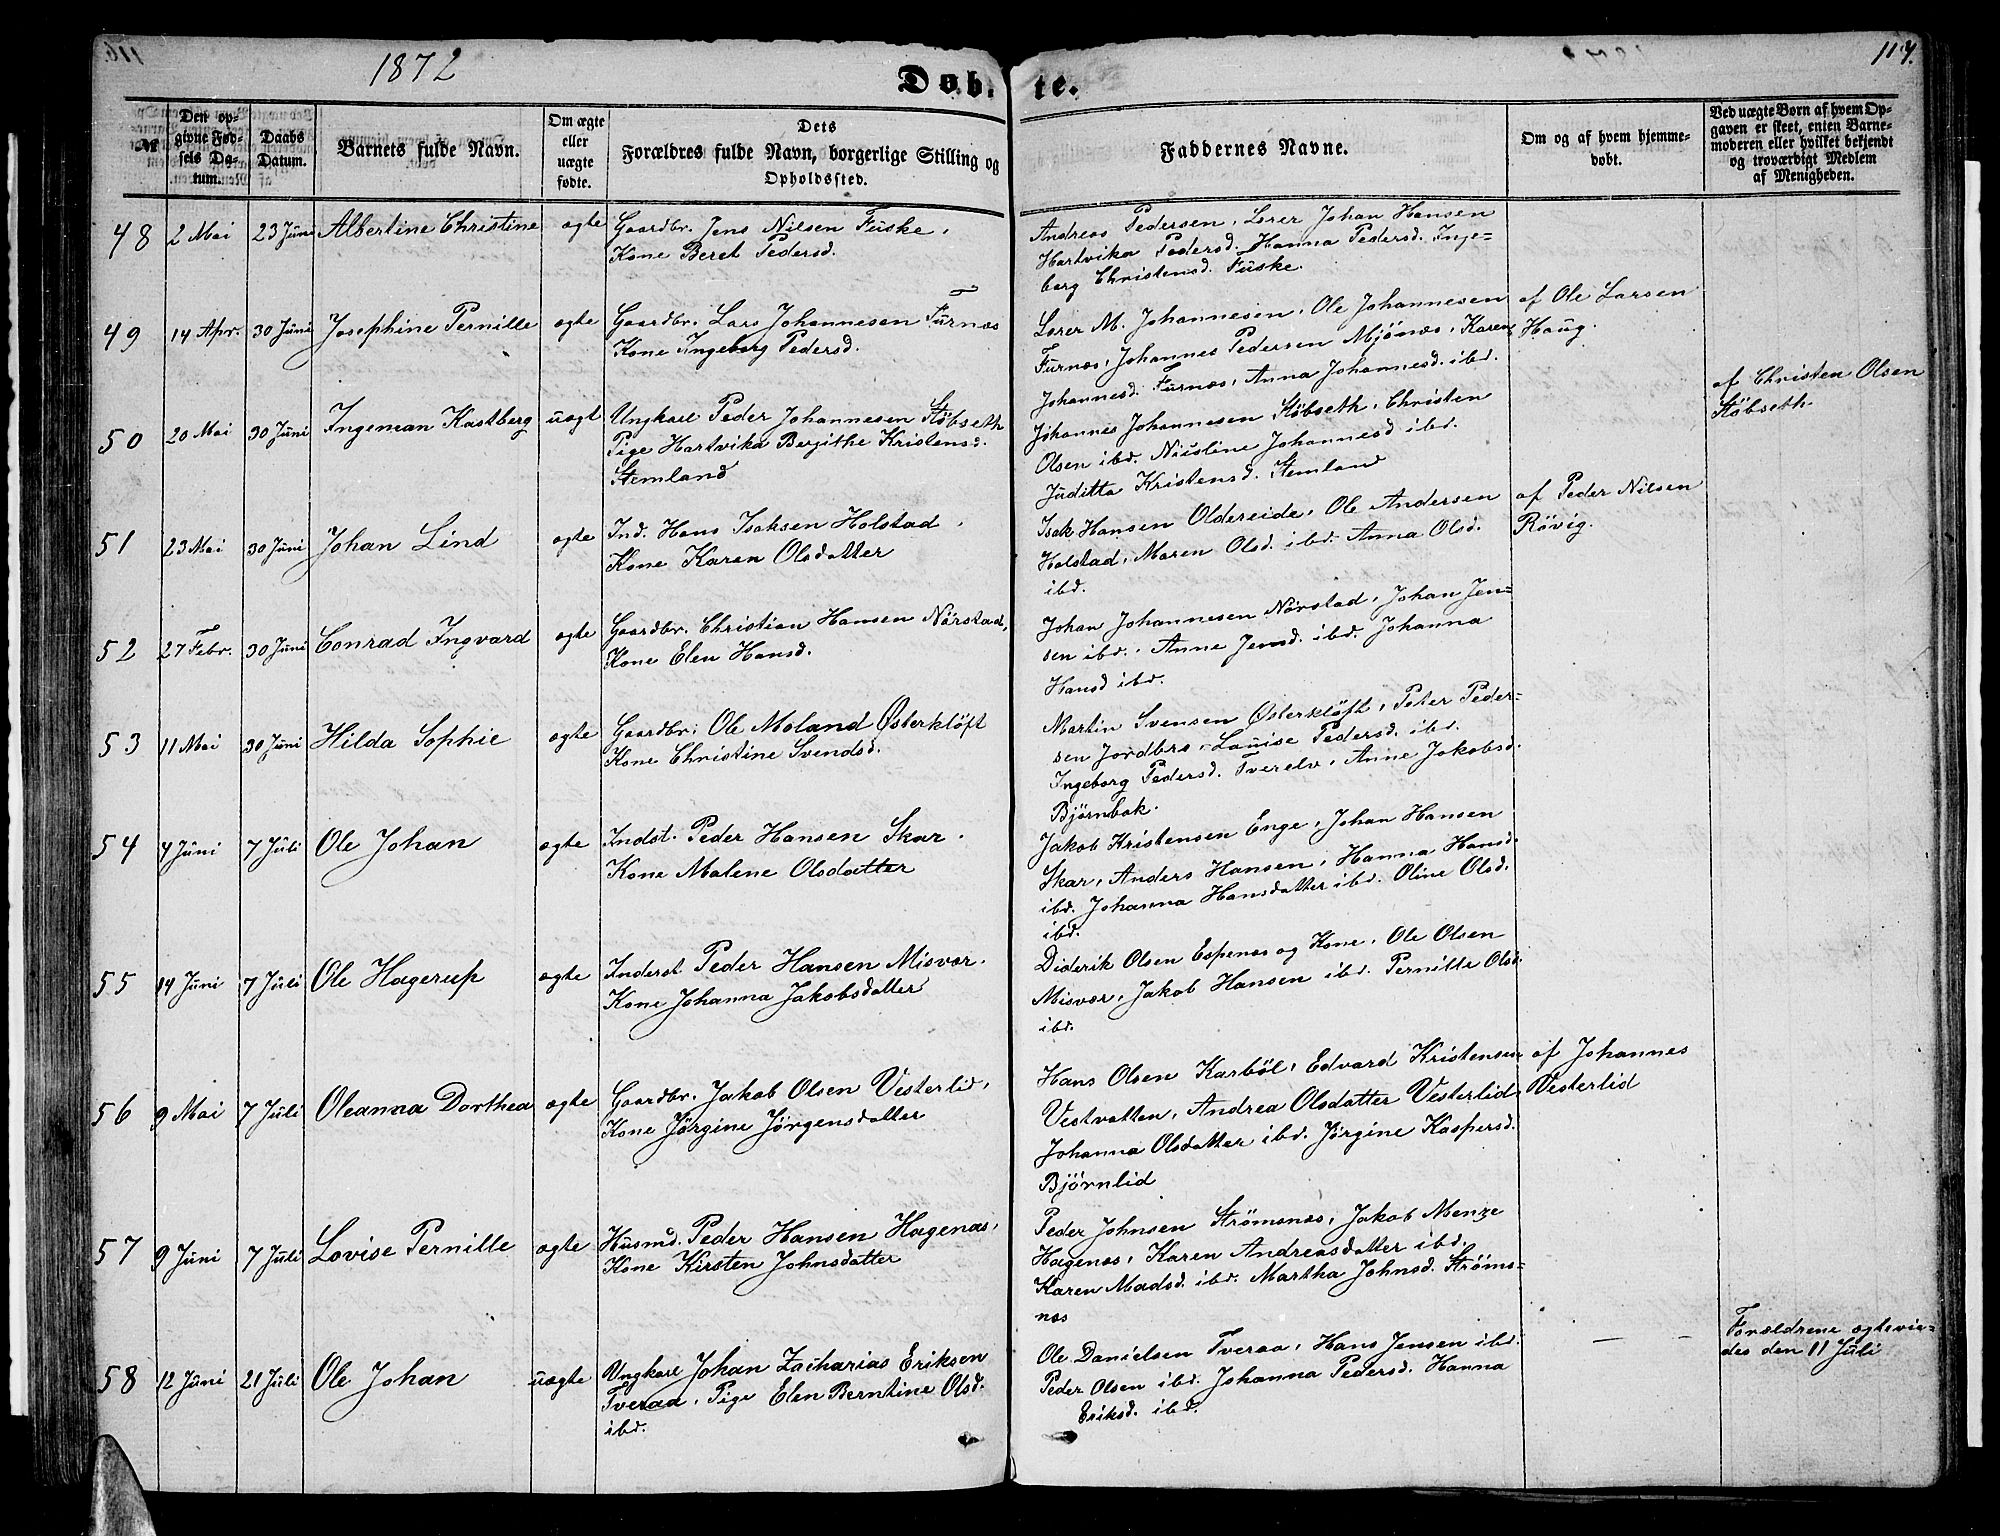 116.
1872
117.
Døb.
te.
№
Den op-
givne Fød-
sels Da-
tum.
Daabs
Datum.
Barnets fulde Navn.
Om ægte
eller
uægte
fødte.
Dets
Forældres fulde Navn, borgerlige Stilling og
Opholdssted.
Faddernes Navne.
Om og af hvem hjemme-
døbt.
Ved uægte Børn af hvem Op-
gaven er skeet, enten Barne-
moderen eller hvilket bekjendt
og troværdigt Medlem
af Menigheden.
48 2 Mai 23 Juni Albertine Christine ægte Gaardbr. Jens Nilsen Fuske,
Kone Beret Pedersd.
Andreas Pedersen, Lærer Johan Hansen
Hartvika Pedersd. Hanna Pedersd. Inge-
borg Christensd. Fuske.
49 14 Apr. 30 Juni Josephine Pernille ægte Gaardbr. Lars Johannesen Furnæs
Kone Ingeborg Pedersd.
Lærer M. Johannesen, Ole Johannesen
Furnæs, Johannes Pedersen Mjönæs, Karen
Johannesd. Furnæs, Anna Johannesd. ibd.
af Ole Larsen
Haug.
50 20 Mai 30 Juni Ingeman Kastberg uægt Ungkarl Peder Johannesen Støbseth
Pige Hartvika Bergithe Kristensd.
Stemland
Johannes Johannesen Støbseth, Christen
Olsen ibd. Nicoline Johannesd. ibd.
Juditta Kristensd. Stemland
af Christen Olsen
Støbseth.
51 23 Mai 30 Juni Johan Lind ægte Ind. Hans Isaksen Holstad,
Kone Karen Olsdatter
Isak Hansen Oldereide, Ole Andersen
Holstad, Maren Olsd. ibd. Anna Olsd.
ibd.
af Peder Nilsen
Rövig.
52 27 Febr. 30 Juni Conrad Ingvard ægte Gaardbr. Christian Hansen Nörstad,
Kone Elen Hansd.
Johan Johannesen Nörstad, Johan Jen-
sen ibd., Anne Jensd. ibd. Johanna
Hansd ibd.
53 11 Mai 30 Juni Hilda Sophie ægte Gaardbr. Ole Moland Østerkløft
Kone Christine Svendsd.
Martin Svensen Østerkløft, Peter Peder-
sen Jordbro, Louise Pedersd. ibd.
Ingeborg Pedersd. Tverelv, Anne Jakobsd.
Björnbak.
54 4 Juni 7 Juli Ole Johan ægte Indst. Peder Hansen Skar.
Kone Malene Olsdatter
Jakob Kristensen Enge, Johan Hansen
Skar, Anders Hansen, Hanna Hansd.
ibd. Johanna Hansdatter ibd. Oline Olsd.
ibd.
55 14 Juni 7 Juli Ole Hagerup ægte Inderst. Peder Hansen Misvær.
Kone Johanna Jakobsdatter
Diderik Olsen Espenæs og Kone, Ole Olsen
Misvær, Jakob Hansen ibd. Pernille Olsd.
ibd.
56 9 Mai 7 Juli Oleanna Dorthea ægte Gaardbr. Jakob Olsen Vesterlid,
Kone Jørgine Jørgensdatter
Hans Olsen Karböl, Edvard Kristensen
Vestvatten, Andrea Olsdatter Vesterlid,
Johanna Olsdatter ibd. Jørgine Kaspersd.
Björnlid
af Johannes
Vesterlid
57 9 Juni 7 Juli Lovise Pernille ægte Husmd. Peder Hansen Hagenæs,
Kone Kirsten Johnsdatter
Peder Johnsen Strömsnæs, Jakob Menze
Hagenæs, Karen Andreasdatter ibd.
Karen Madsd. ibd. Martha Johnsd. Ströms-
næs
58 12 Juni 21 Juli Ole Johan uægte Ungkarl Johan Zacharias Eriksen
Tveraa, Pige Elen Berntine Olsd.
ibd.
Ole Danielsen Tveraa, Hans Jensen ibd.
Peder Olsen ibd. Johanna Pedersd. Hanna
Eriksd. ibd.
— —
Forældrene ægtevie-
des den 11 Juli